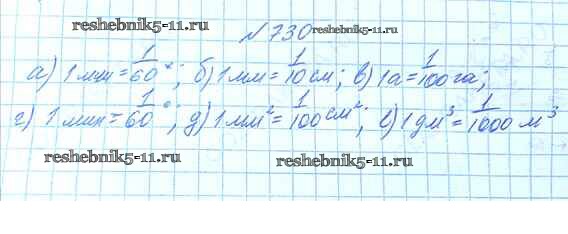 reshebnik5-11.ru
№730 reshebnik5-11.ru
а) 1 мин = 1/60 ч; б) 1 мм = 1/10 см; в) 1 а = 1/100 га;
г) 1 мин = 1/60 °; д) 1 мм² = 1/100 см²; е) 1 дм³ = 1/1000 м³
reshebnik5-11.ru reshebnik5-11.ru